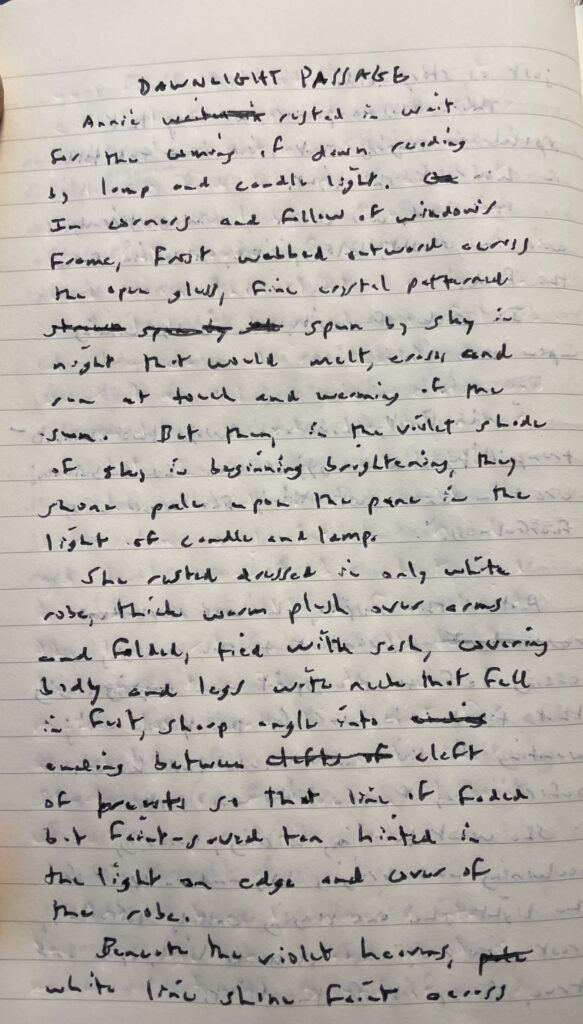 DAWNLIGHT PASSAGE
Annie rested in wait
for the coming of dawn reading
by lamp and candle light.
In corners and follow of windows
frame, frost webbed outward across
the open glass, fine crystal patterned
spun by sky in
night that would melt, erase and
run at touch and warming of the
sun. But then, in the violet shade
of sky in beginning brightening, they
shone pale upon the pane in the
light of candle and lamp.
She rested dressed in only white
robe, thick warm plush over arms
and folded, tied with sash, covering
body and legs with neck that fell
in fast, sharp angle into
ending between cleft
of breasts so that line of faded
but faint-saved tan hinted in
the light on edge and cover of
the robe.
Beneath the violet heavens,
white line shine faint across